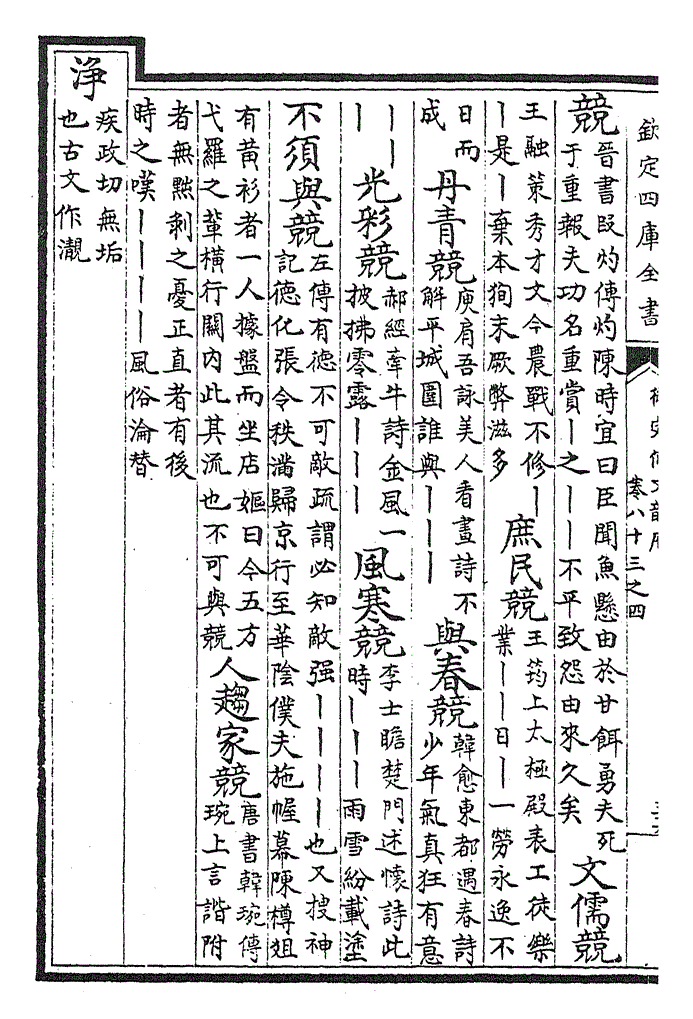 欽定四庫全書
卷八十三之四
競
晉書段灼傳灼陳時宜曰臣聞魚懸由於甘餌勇夫死
于重報夫功名重賞丨之丨丨不平致怨由來久矣
文儒競
王融策秀才文今農戰不修丨
丨是丨棄本狥末厥弊滋多
庶民競
王筠上太極殿表工徒樂
業丨丨日丨一勞永逸不
日而
成
丹青競
庾肩吾詠美人看畫詩不
解平城圍誰與丨丨丨
與春競
韓愈東都遇春詩
少年氣真狂有意
丨丨
丨
光彩競
郝經牽牛詩金風一
披拂零露丨丨丨
風寒競
李士瞻楚門述懷詩此
時丨丨丨雨雪紛載塗
不須與競
左傳有德不可敵疏謂必知敵强丨丨丨丨也又搜神
記德化張令秩滿歸京行至華陰僕夫施幄幕陳樽俎
有黄衫者一人據盤而坐店嫗曰今五方
弋羅之輩橫行關内此其流也不可與競
人趨家競
唐書韓琬傳
琬上言諧附
者無黜剥之憂正直者有後
時之嘆丨丨丨丨風俗淪替
淨
疾政切無垢
也古文作瀞